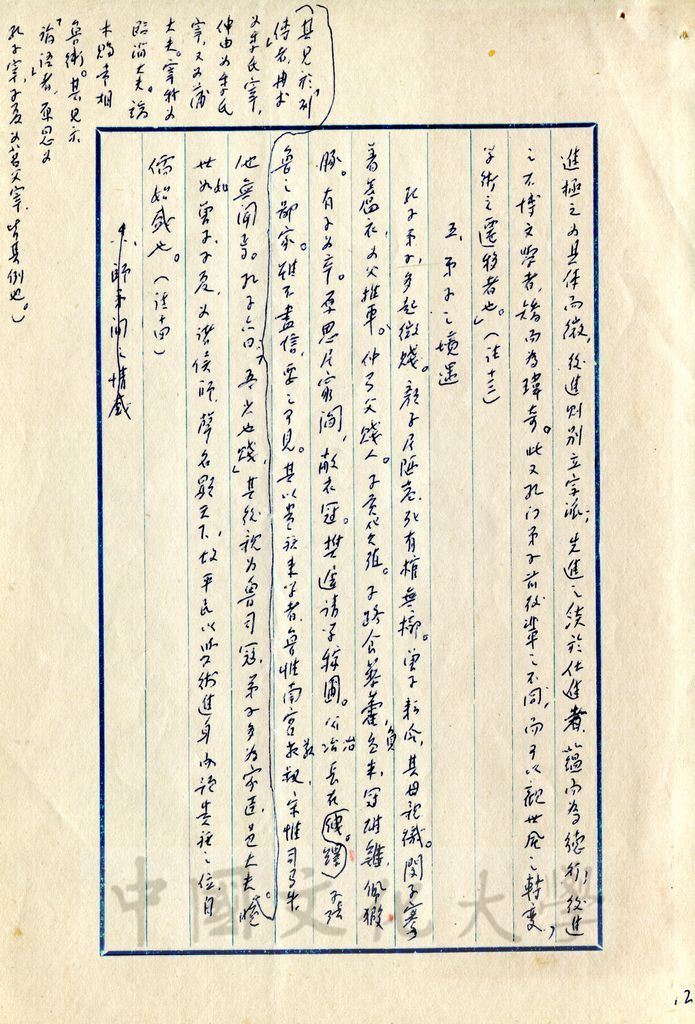 進極之為具体而微，後進則別立宗派；先進之淡於仕進者，蘊而為德行，後進
之不博文學者，矯而為瑋奇。此又孔门弟子前後輩之不同，而可以觀世風之轉变，
學術之遷移者也。」（註十三）
五、弟子之境遇
孔子弟子，多起微賤。顏子居陋巷，死有棺無槨。曾子耘瓜，其母親織。閔子騫
著蘆衣，為父推車。仲弓父賤人。子貢貨殖。子路食藜藿，負米，冠雄雞，佩猳
豚。有子為卒。原思居窮閻，敝衣冠。樊遲請學稼圃。公冶長在縲絏。子張
魯之鄙家。雖不盡信，要之可見。其以貴族來學者，魯惟南宮敬叔，宋惟司馬牛
他無聞焉。孔子亦曰，「吾少也賤」，其後親為魯司寇，弟子多為家臣、邑大夫。
世如曾子、子夏，為諸侯師，聲名顯天下，故平民以學術進身而議貴族之位，自
儒始盛也。（註十四）
六、師弟間之情感
（其見於列
傳者，冉求
為季氏宰，
仲由為季氏
宰，又為蒲
大夫。宰我為
臨淄大夫。端
木賜常相
魯衛。其見於
論語者，原思為
孔子宰，子夏為莒父宰，皆其例也。）
中國文化大學
12